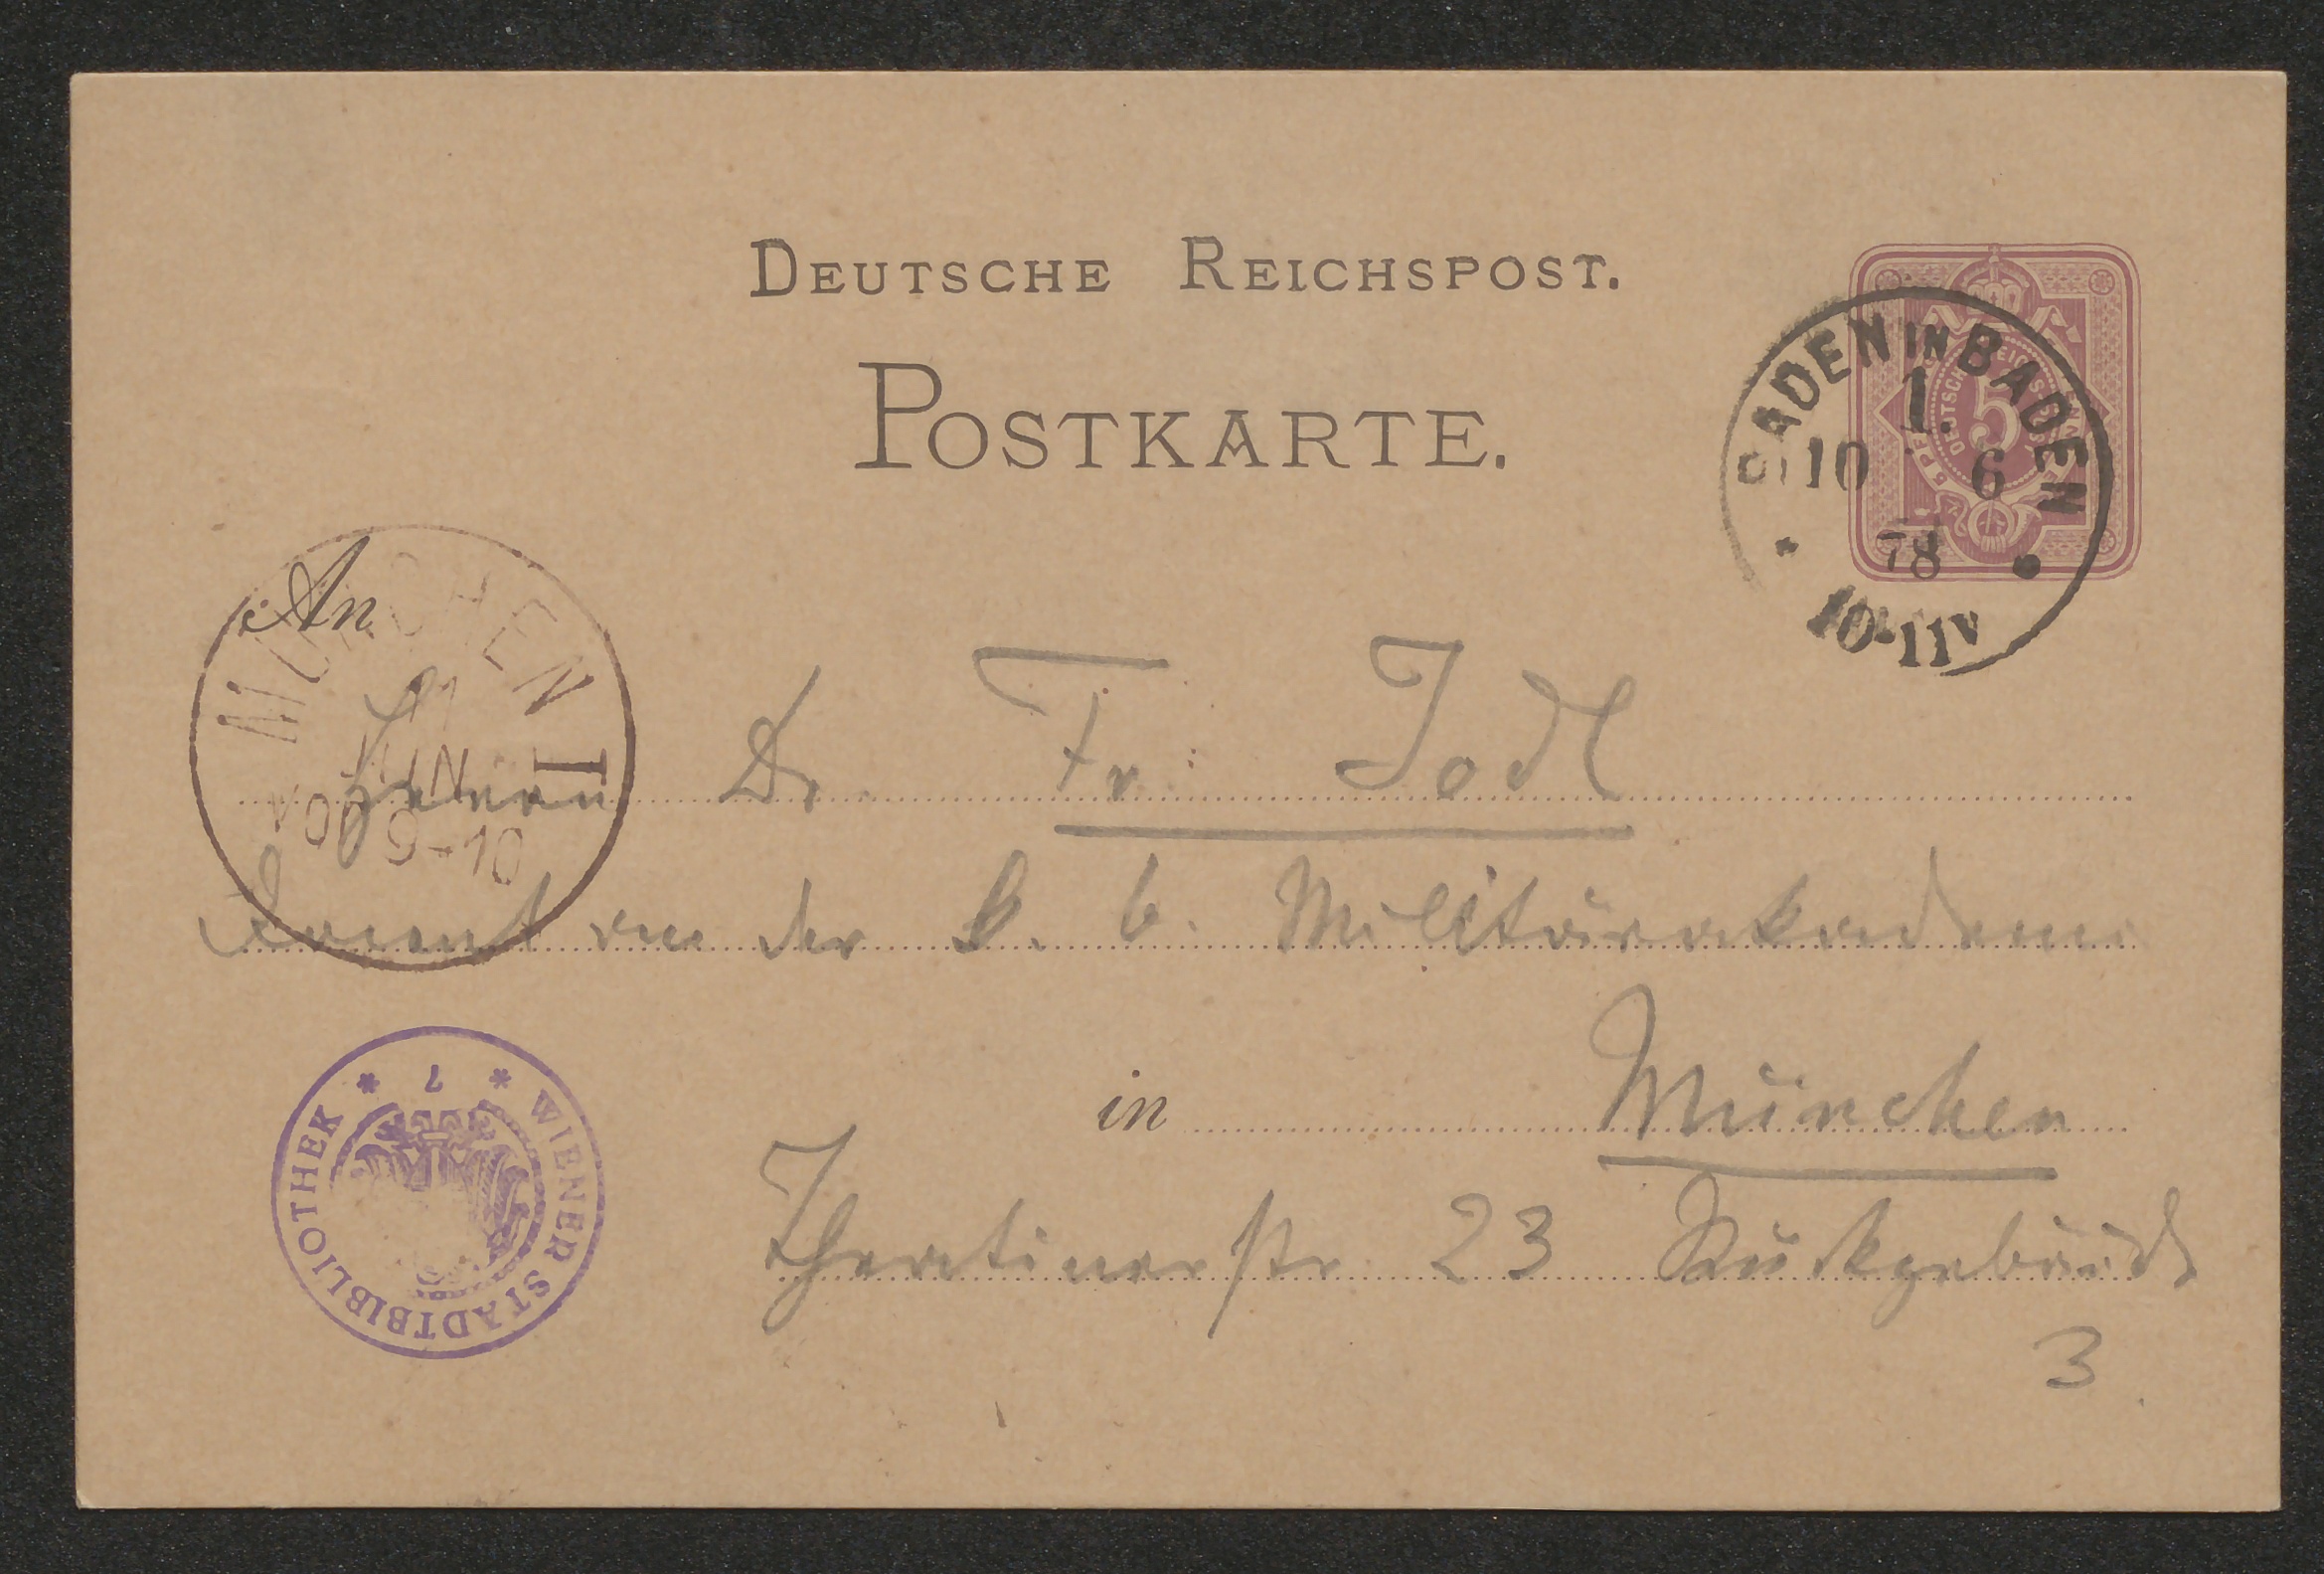 DEUTSCHE REICHSPOST.
POSTKARTE.
BADEN IN BADEN
1.
10 6
78
10-11V
DEUTSCHE REICHSPOST
5
An
MÜNCHEN I
11
JUN
VOR 9-10
Herrn Dr. Fr: Jodl
Docent an der k. b. Militärakademie
in München
Theatinerstr 23 Rückgebäude
3
WIENER STADTBIBLIOTHEK * 7 *